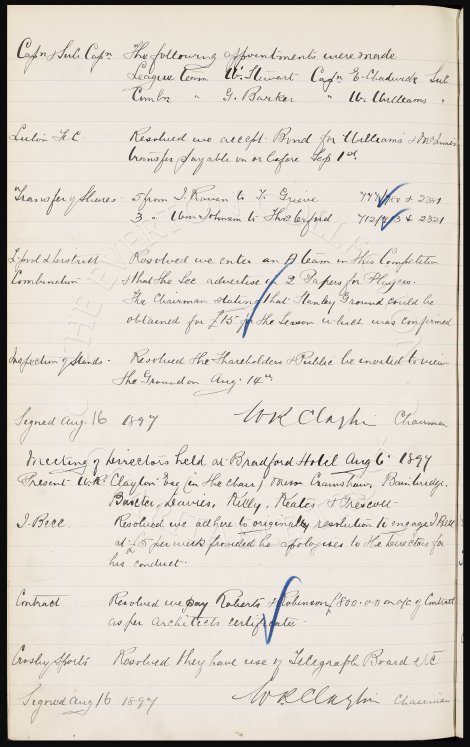 Capn & Sub Capn The following appointments were made
League Team W. Stewart Capn E. Chadwick Sub
Combn " G. Barker " W. Williams "
Luton F.C. Resolved we accept Bond for Williams & McInnes
transfer payable on or before Sep 1st
Transfer of Shares 5 from J. Raven to T. Grieve & 2321
3 " Wm Johnson to 712/ & 2321
L'pool & District Resolved we enter an A team in this Competition
Combination & that the Sec advertise in 2 Papers for Players.
The Chairman stating that Stanley Ground could be
obtained for £15 for the Season which was confirmed
Inspection of Stands. Resolved the Shareholders & Public be invited to view
the Ground on Aug. 14th
Signed Aug 16 1897 W R Clayton Chairman
Meeting of Directors held at Bradford Hotel Aug 6. 1897
Present W.R. Clayton Esq (in the chair) Messrs Cranshaw, Bainbridge,
Baxter, Davies, Kelly, Keates & Prescott
J. Bell Resolved we adhere to originally resolution to engage J Bell
at £5 per week provided he apologises to the Directors for
his conduct.
Contract Resolved we pay Roberts & Robinson £800.0.0 on a/c of Contract
as per architects certificate.
Crosby Sports Resolved they have use of Telegraph Board etc
Signed Aug 16 1897 W R Clayton Chairman